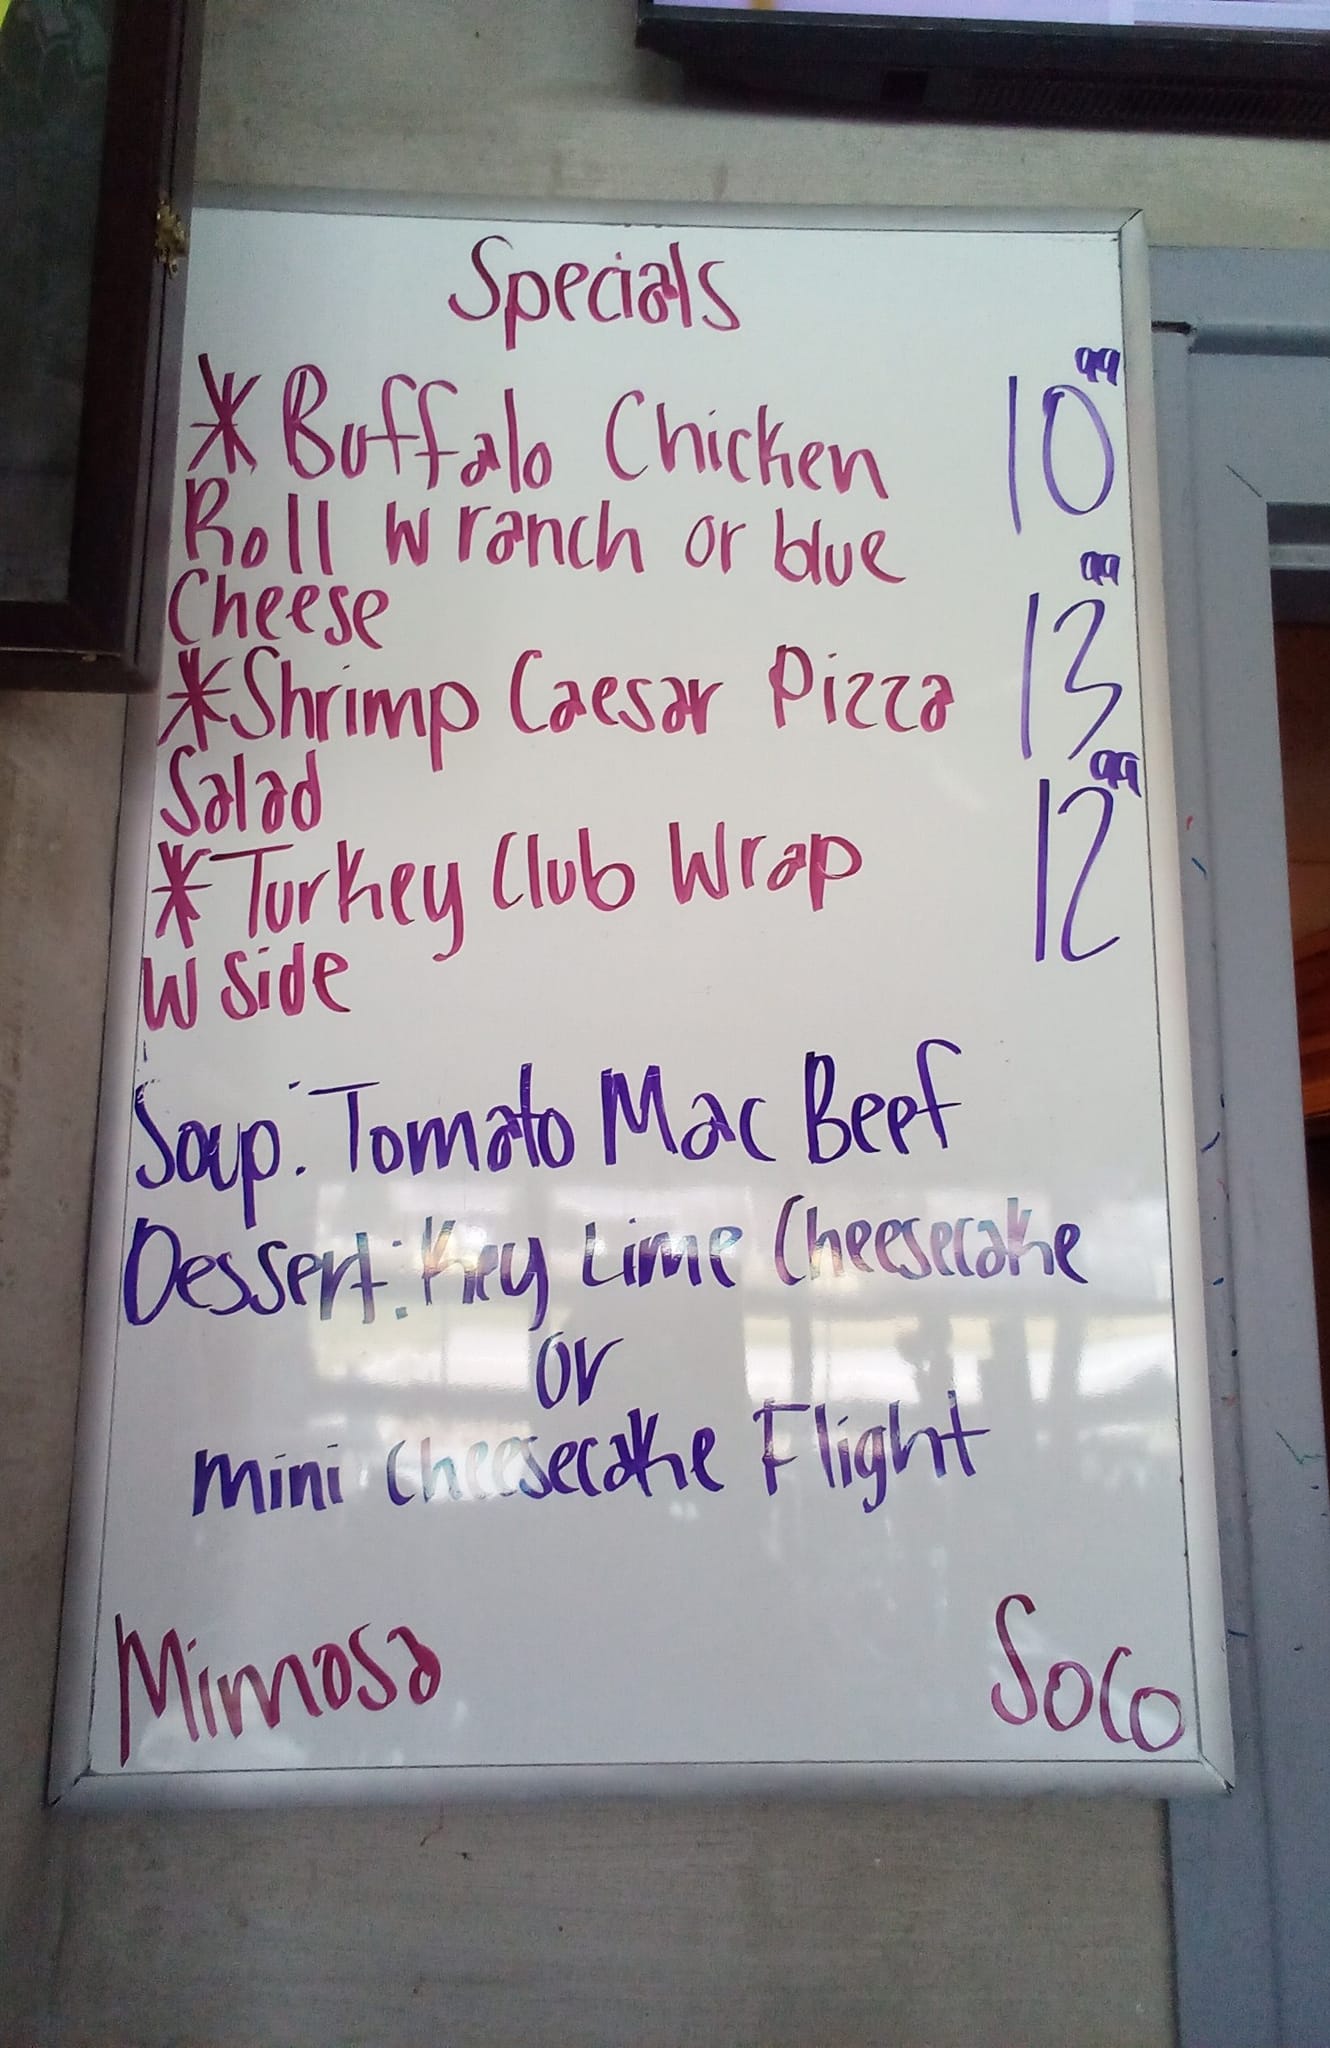 Specials
* Buffalo Chicken 10 99
Roll w ranch or blue
Cheese
* Shrimp Caesar Pizza 13 99
Salad
* Turkey Club Wrap 12 99
w side
Soup: Tomato Mac Beef
Dessert: Key Lime Cheesecake
or
mini cheesecake Flight
Mimosa SoCo